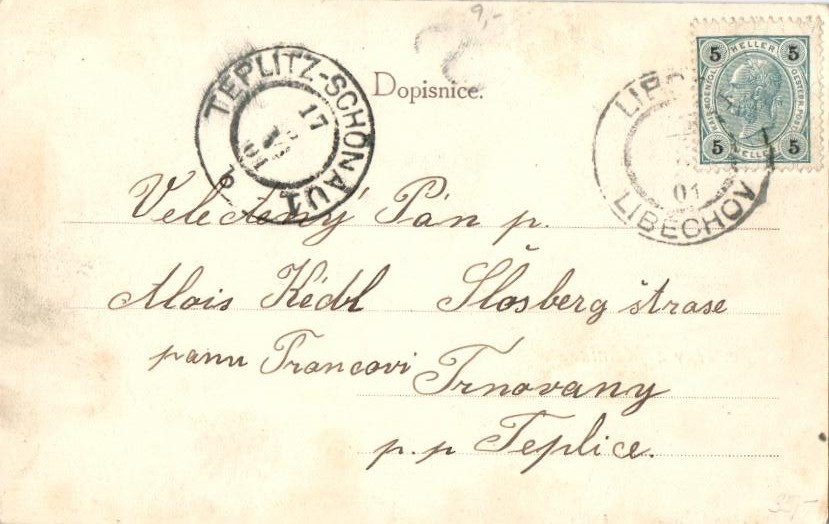 9,-
Dopisnice.
5 HELLER 5
5 HELLER 5
TEPLITZ-SCHÖNAU 1
17
01
b
01
LIBĚCHOV
Velectěný Pán p.
Alois Kédl Šlosberg štrase
panu Francovi Trnovany
p.p Teplice.